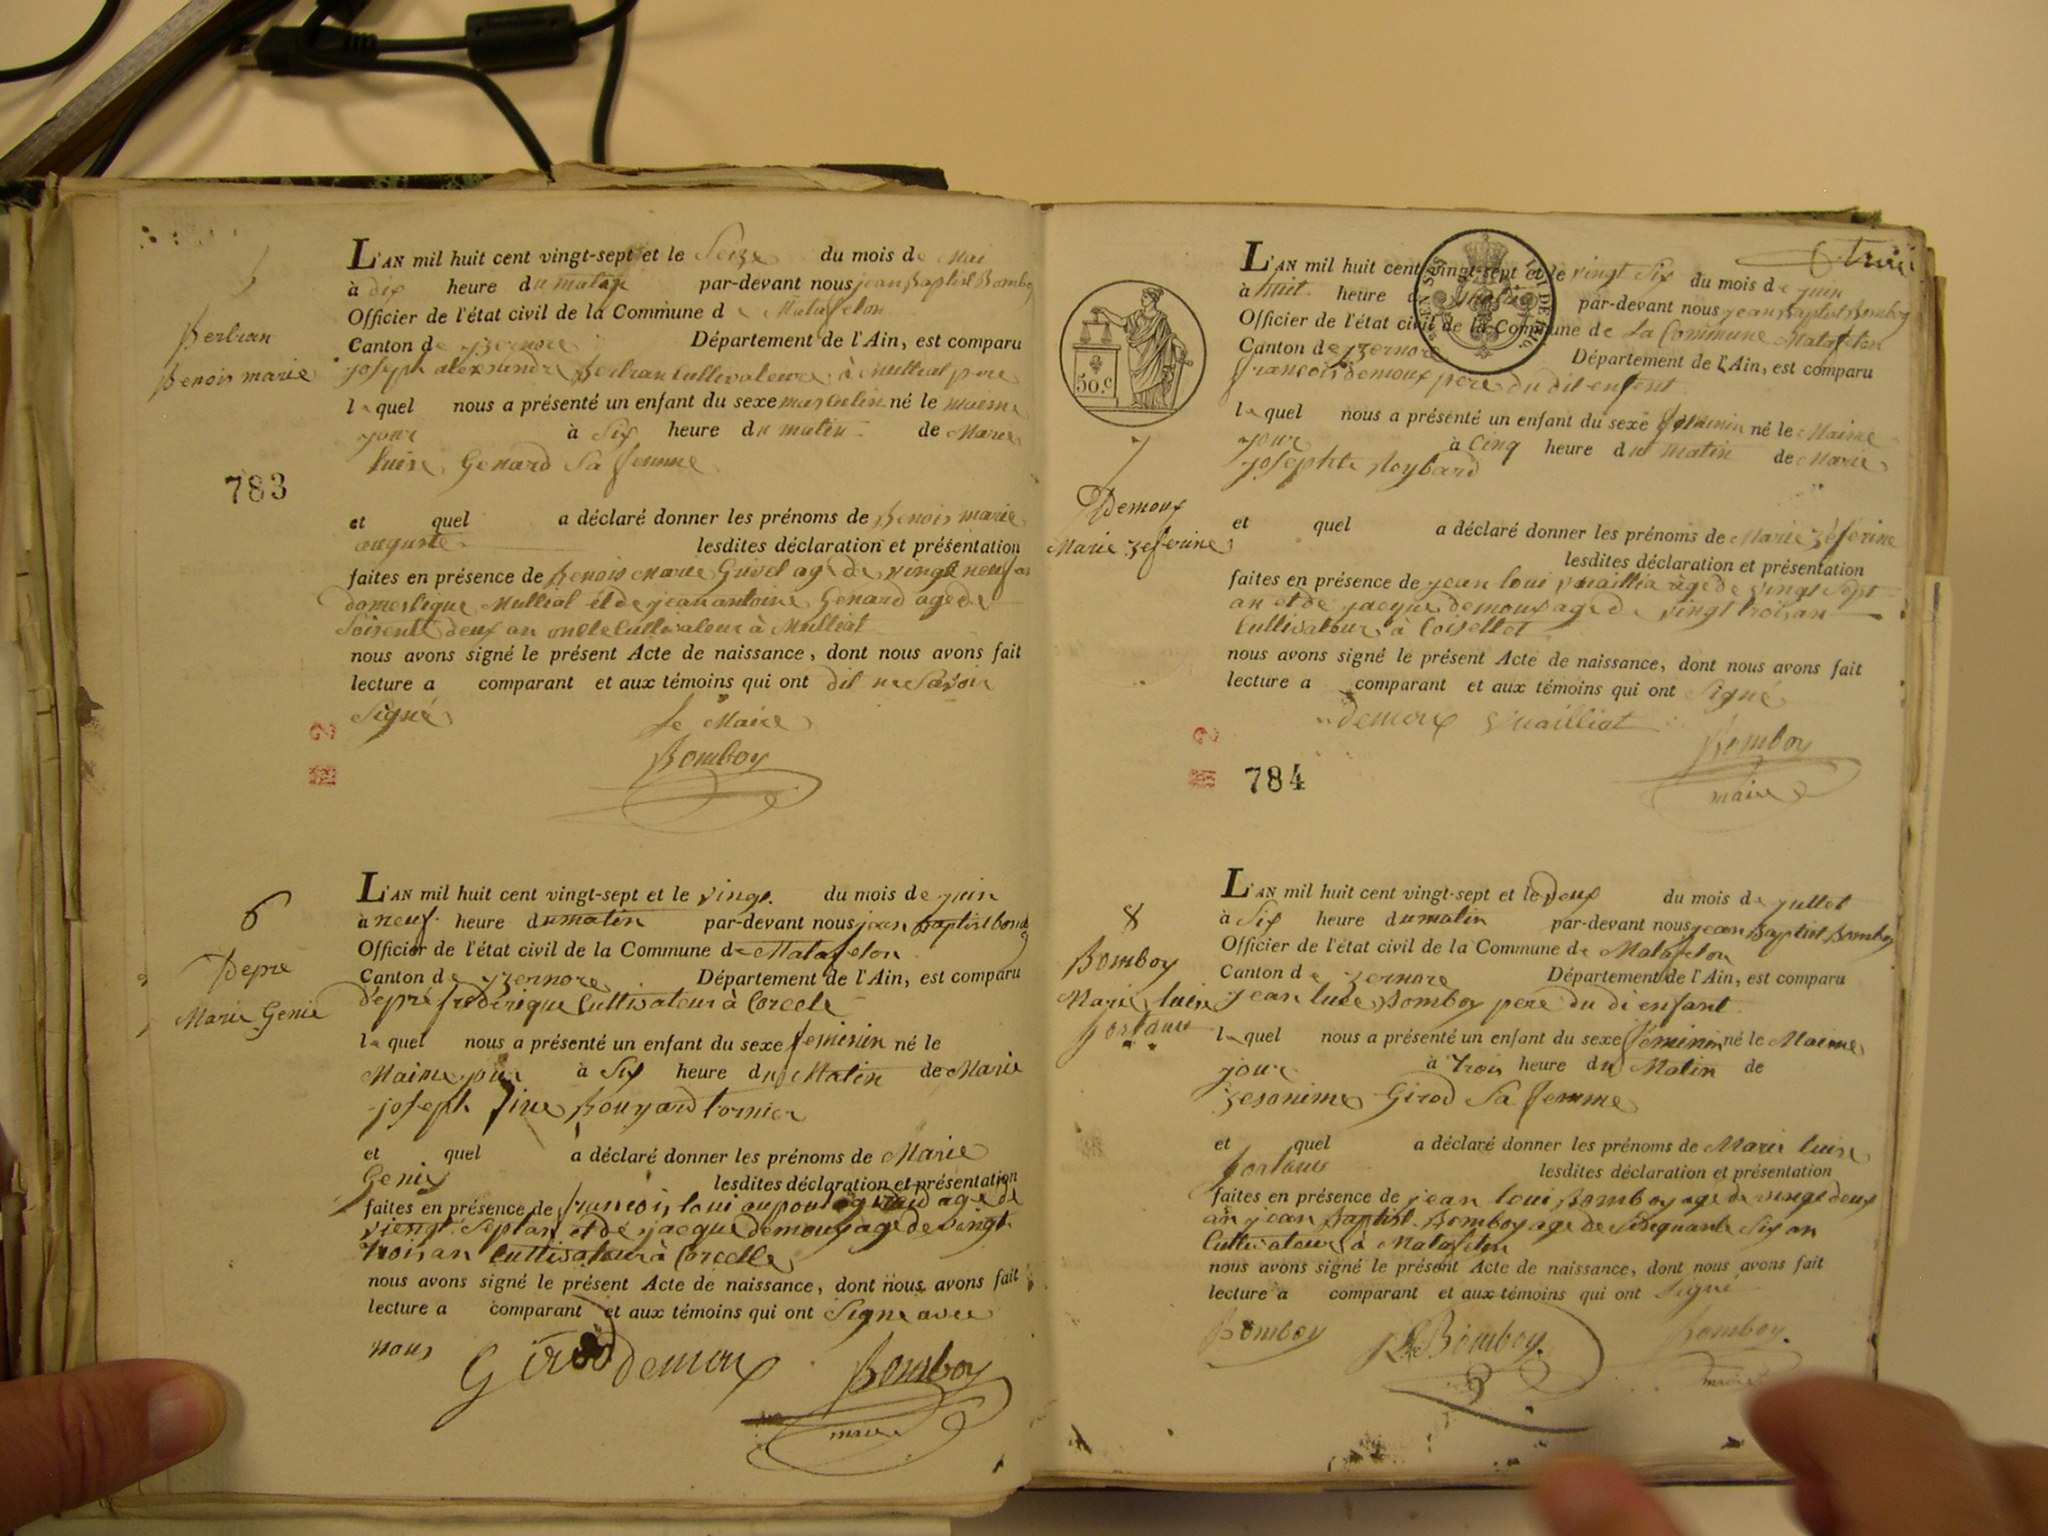 5
Bertran
Benois marie
L'AN mil huit cent vingt-sept et le Seize du mois de Mai
à dix heure du matin par-devant nous jean Baptist Bomboy
Officier de l'état civil de la Commune de Matafelon
Canton de yzernore Département de l'Ain, est comparu
joseph alexandre Bertran Cultivateure à Mulliat pere
le quel nous a présenté un enfant du sexe masculin né le maime
jour à Six heure du matin de Marie
luise Genard Sa femme
783
et quel a déclaré donner les prénoms de Benois marie
auguste lesdites déclaration et présentation
faites en présence de Benois Marie Guvel agé de vingt neuf an
domestique Mulliat et de jean antoine Genard age de
Soisente deux an oncle Cultivateur à Mulliat
nous avons signé le présent Acte de naissance, dont nous avons fait
lecture a comparant et aux témoins qui ont dit ne Savoir
Signé
le Maire
Bomboy
6
Depre
Marie Genie
L'AN mil huit cent vingt-sept et le vingt du mois de juin
à neuf heure du matin par-devant nous jean baptist bomboy
Officier de l'état civil de la Commune de Matafelon
Canton de yzernore Département de l'Ain, est comparu
depré frederique Cultivateur à Corcele
le quel nous a présenté un enfant du sexe feminin né le
Maime jour à Six heure du Matin de Marie
joseph fine Bouyard tornier
et quel a déclaré donner les prénoms de Marie
Genie lesdites déclaration et présentation
faites en présence de francois loui age de
viengt Sept an et de jacque demoux age de vingt
trois an Cultivateur à Corcelle
nous avons signé le présent Acte de naissance, dont nous avons fait
lecture a comparant et aux témoins qui ont Signe avec
nous
Girod demoux Bomboy
maire
trois
50.c
L'AN mil huit cent vingt-sept et le vingt Six du mois de juin
à huit heure du matin par-devant nous jean Baptist Bomboy
Officier de l'état civil de la Commune de La Commune Matafelon
Canton de yzernore Département de l'Ain, est comparu
francois demoux pere du dit enfent
le quel nous a présenté un enfant du sexe feminin né le Maime
jour à Cinq heure du Matin de Marie
josephte Roybard
7
Demoux
Marie zeferine
et quel a déclaré donner les prénoms de Marie zéferine
lesdites déclaration et présentation
faites en présence de jean loui vuaillia àge de vingt Sept
an et de jacque demoux age de vingt trois an
Cultivateur à Coisellet
nous avons signé le présent Acte de naissance, dont nous avons fait
lecture a comparant et aux témoins qui ont Signé
demoux vuailliat
Bomboy
maire
784
8
Bomboy
Marie luise
fortanie
L'AN mil huit cent vingt-sept et le deux du mois de jullet
à Six heure du matin par-devant nous jean Baptist Bomboy
Officier de l'état civil de la Commune de Matafelon
Canton de yzernore Département de l'Ain, est comparu
jean luce Bomboy pere du di enfant
le quel nous a présenté un enfant du sexe feminin né le Maime
jour à trois heure du Matin de
zesonime Girod Sa femme
et quel a déclaré donner les prénoms de Marie luise
fortanie lesdites déclaration et présentation
faites en présence de jean loui Bomboy age de vingt deux
an jean baptist Bomboy age de Sinquante Six an
Cultivateur à Matafelon
nous avons signé le présent Acte de naissance, dont nous avons fait
lecture à comparant et aux témoins qui ont Signé
Bomboy Bomboy Bomboy
maire